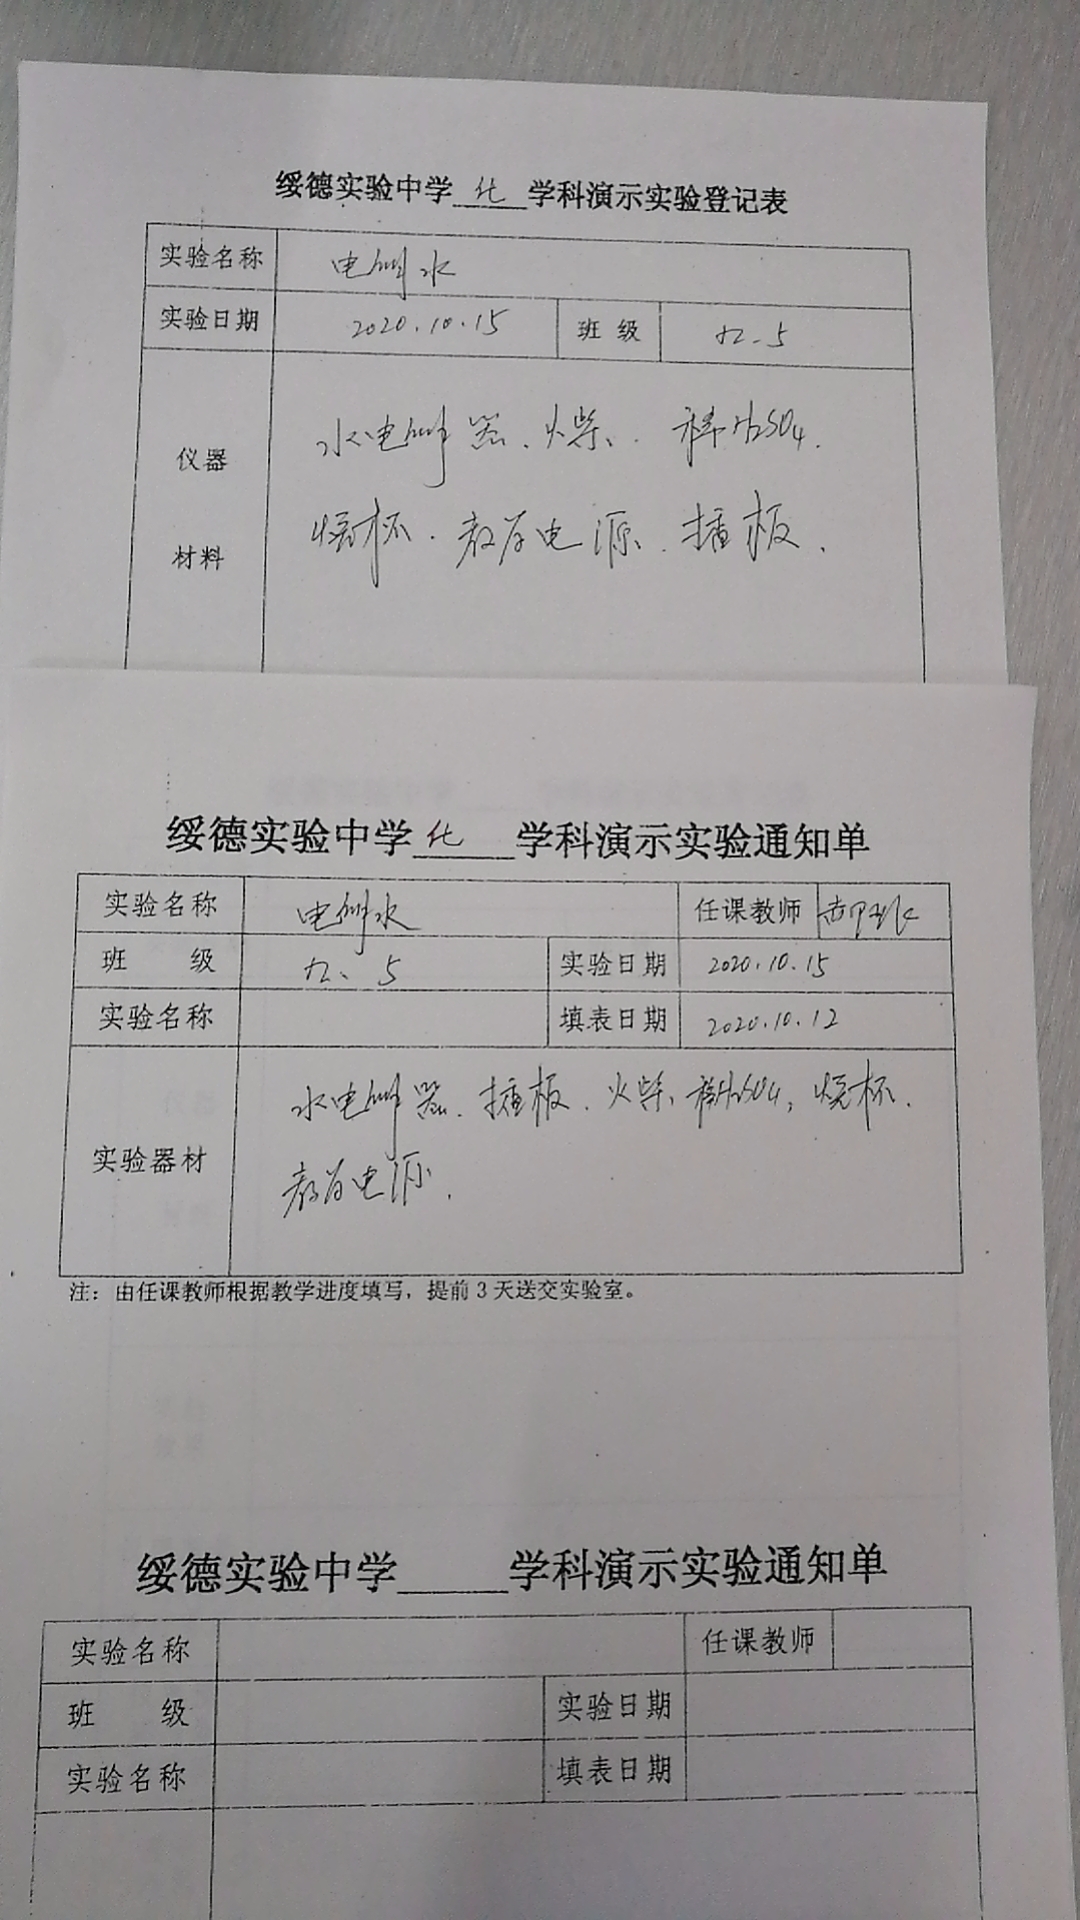 绥德实验中学 化 学科演示实验登记表
实验名称 电解水
实验日期 2020.10.15 班级 九.5
仪器
材料
水电解器、火柴、稀H2SO4、
烧杯、教学电源、插板、
绥德实验中学 化 学科演示实验通知单
实验名称 电解水 任课教师
班 级 九、5 实验日期 2020.10.15
实验名称 填表日期 2020.10.12
实验器材
水电解器、插板、火柴、稀H2SO4、烧杯、
教学电源、
注：由任课教师根据教学进度填写，提前3天送交实验室。
绥德实验中学 学科演示实验通知单
实验名称 任课教师
班 级 实验日期
实验名称 填表日期